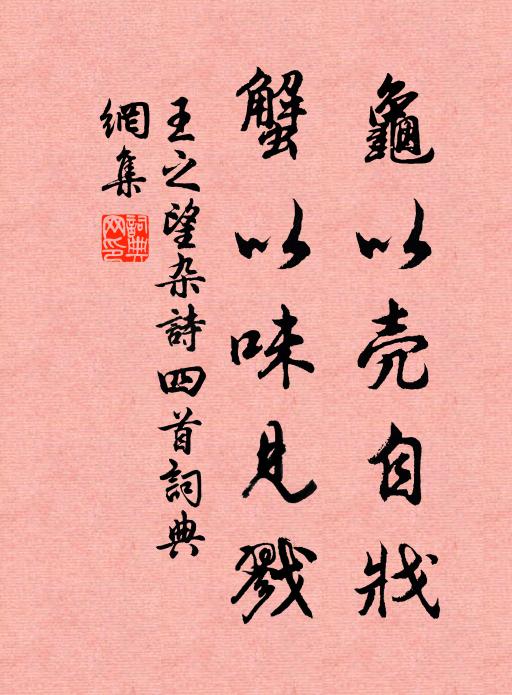 龜以壳自戕
蟹以味見戮
王之望杂詩四首詞典
網集
詞典網印